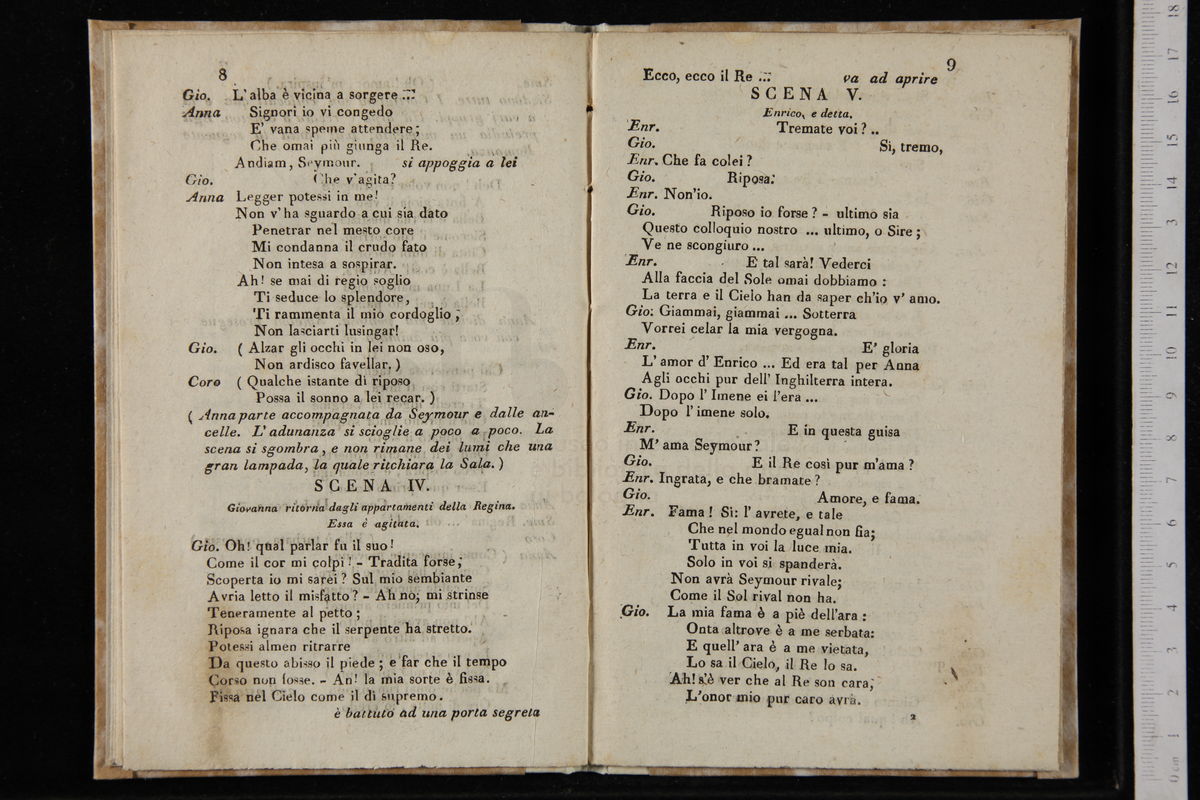 8
Gio. L' alba è vicina a sorgere ...
Anna Signori io vi congedo
E' vana speme attendere;
Che omai più giunga il Re.
Andiam, Seymour. si appoggia a lei
Gio. Che v'agita?
Anna Legger potessi in me!
Non v'ha sguardo a cui sia dato
Penetrar nel mesto core
Mi condanna il crudo fato
Non intesa a sospirar.
Ah! se mai di regio soglio
Ti seduce lo splendore,
Ti rammenta il mio cordoglio,
Non lasciarti lusingar!
Gio. ( Alzar gli occhi in lei non oso,
Non ardisco favellar. )
Coro ( Qualche istante di riposo
Possa il sonno a lei recar. )
( Anna parte accompagnata da Seymour e dalle an-
celle. L' adunanza si scioglie a poco a poco. La
scena si sgombra, e non rimane dei lumi che una
gran lampada, la quale ritchiara la Sala. )
SCENA IV.
Giovanna ritorna dagli appartamenti della Regina.
Essa è agitata.
Gio. Oh! qual parlar fu il suo!
Come il cor mi colpì! - Tradita forse,
Scoperta io mi sarei? Sul mio sembiante
Avria letto il misfatto? - Ah no; mi strinse
Teneramente al petto;
Riposa ignara che il serpente ha stretto.
Potessi almen ritrarre
Da questo abisso il piede; e far che il tempo
Corso non fosse. - Ah! la mia sorte è fissa.
Fissa nel Cielo come il dì supremo.
è battuto ad una porta segreta
9
Ecco, ecco il Re ... va ad aprire
SCENA V.
Enrico, e detta.
Enr. Tremate voi? ..
Gio. Si, tremo,
Enr. Che fa colei?
Gio. Riposa:
Enr. Non'io.
Gio. Riposo io forse? - ultimo sia
Questo colloquio nostro ... ultimo, o Sire;
Ve ne scongiuro ...
Enr. E tal sarà! Vederci
Alla faccia del Sole omai dobbiamo:
La terra e il Cielo han da saper ch'io v' amo.
Gio: Giammai, giammai ... Sotterra
Vorrei celar la mia vergogna.
Enr. E' gloria
L' amor d' Enrico ... Ed era tal per Anna
Agli occhi pur dell' Inghilterra intera.
Gio. Dopo l' Imene ei l'era ...
Dopo l' imene solo.
Enr. E in questa guisa
M' ama Seymour?
Gio. E il Re così pur m'ama?
Enr. Ingrata, e che bramate?
Gio. Amore, e fama.
Enr. Fama! Sì: l' avrete, e tale
Che nel mondo egual non fia;
Tutta in voi la luce mia.
Solo in voi si spanderà.
Non avrà Seymour rivale;
Come il Sol rival non ha.
Gio. La mia fama è a piè dell'ara:
Onta altrove è a me serbata:
E quell' ara è a me vietata,
Lo sa il Cielo, il Re lo sa.
Ah! s'è ver che al Re son cara,
L'onor mio pur caro avrà.
2
0 cm 1 2 3 4 5 6 7 8 9 10 11 12 13 14 15 16 17 18